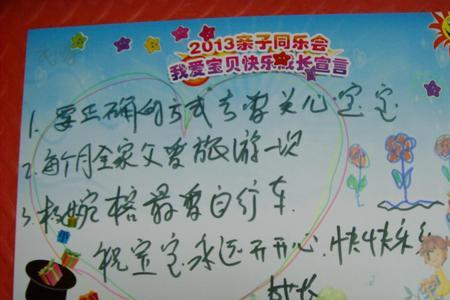 2013亲子同乐会
我爱宝贝快乐成长宣言
1. 要正确的方式去要关心宝宝
2. 每个月全家父要旅游一次
3. 最要自行车.
祝宝宝永远开开心心.快快乐乐